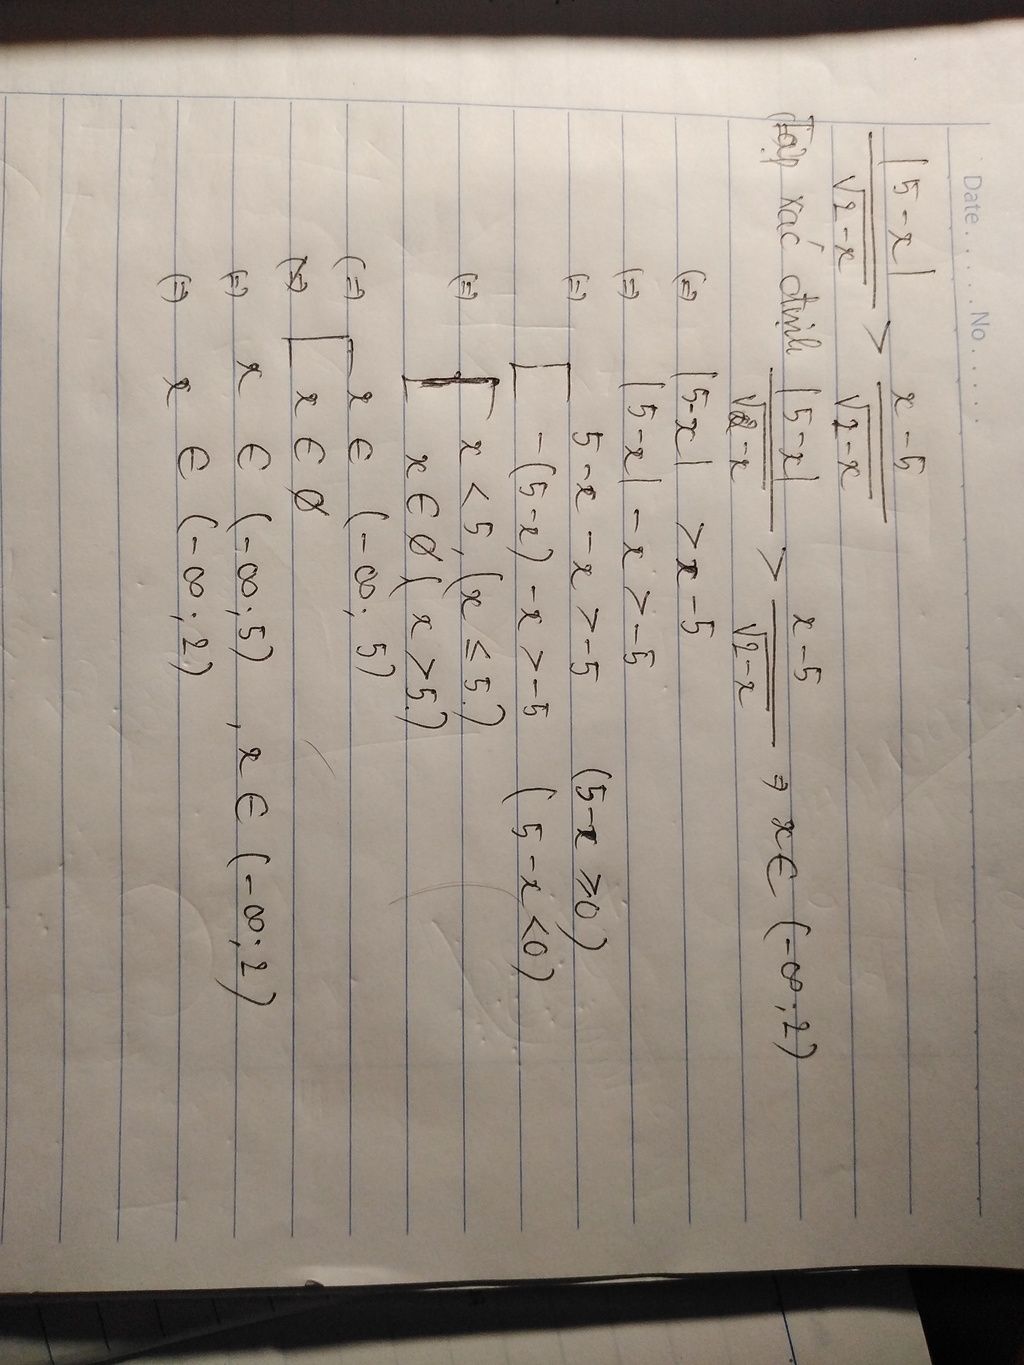 Date . . . . . No . . . . . .
|5-x| / √2-x > x-5 / √2-x
Tập xác định |5-x| / √2-x > x-5 / √2-x ⇒ x ∈ (-∞; 2)
(=) |5-x| > x-5
(=) |5-x| - x > -5
(=) [ 5-x - x > -5 (5-x ≥ 0)
-(5-x) - x > -5 (5-x < 0)
(=) [ x < 5, (x ≤ 5)
x ∈ ∅ (x > 5)
(=) [ x ∈ (-∞; 5)
x ∈ ∅
(=) x ∈ (-∞; 5), x ∈ (-∞; 2)
(=) x ∈ (-∞; 2)